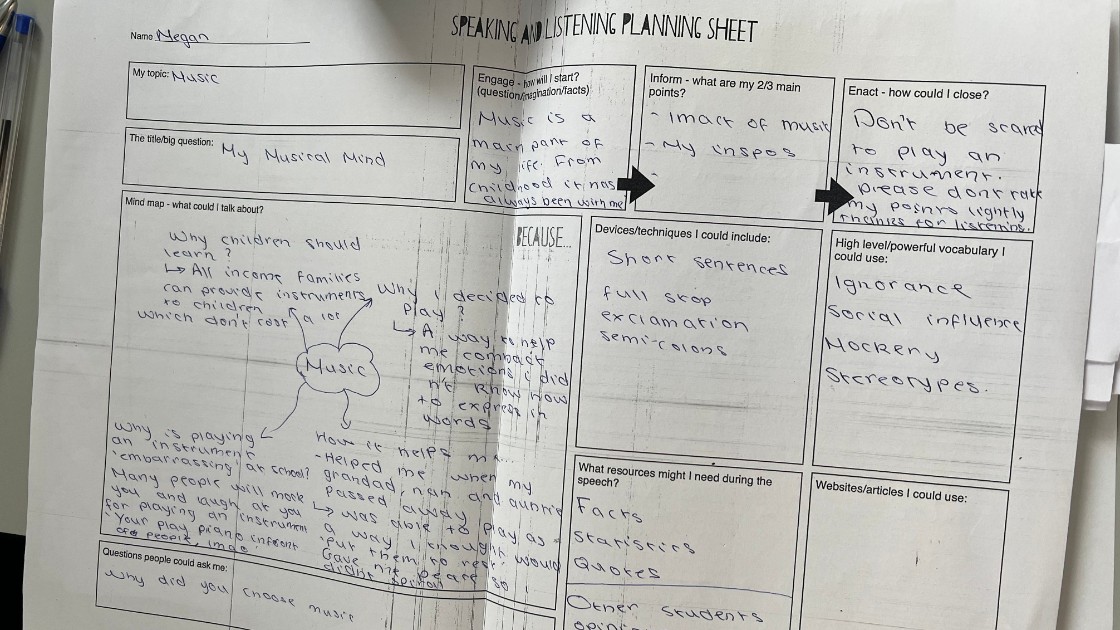 SPEAKING AND LISTENING PLANNING SHEET
Name Megan
My topic: Music
The title/big question: My Musical Mind
Engage - how will I start?
(question/imagination/facts)
Music is a
main part of
my life. From
childhood it has
always been with me
Inform - what are my 2/3 main
points?
- Imact of music
- My inspos
-
Enact - how could I close?
Don't be scared
to play an
instrument.
please dont take
my points lightly
thankes for listening.
Mind map - what could I talk about?
BECAUSE...
Why children should
learn?
↳ All income families
can provide instruments
to children
which don't cost a lot
Why I decided to
play?
↳ A way to help
me combact
emotions i did
n't know how
to express in
words
Music
Why is playing
an instrument
'embarrassing' at school?
Many people will mock
you and laugh at you
for playing an instrument
'Your play piano infront
of people, lmao'
How it helps me
- Helped me when my
grandad, nan and auntie
passed away
↳ was able to play as
a way I thought would
'put them to rest'.
Gave me peace so
didnt
Devices/techniques I could include:
Short sentences
full stop
exclamation
semi-colons
High level/powerful vocabulary I
could use:
Ignorance
Social influence
Mockery
Stereotypes.
What resources might I need during the
speech?
Facts
Statistics
Quotes
Other students
Websites/articles I could use:
Questions people could ask me:
Why did you choose music